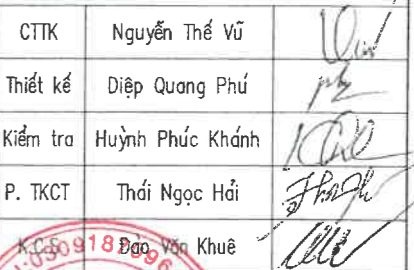 CTTK Nguyễn Thế Vũ
Thiết kế Diệp Quang Phú
Kiểm tra Huỳnh Phúc Khánh
P. TKCT Thái Ngọc Hải
K.C.S Đào Văn Khuê